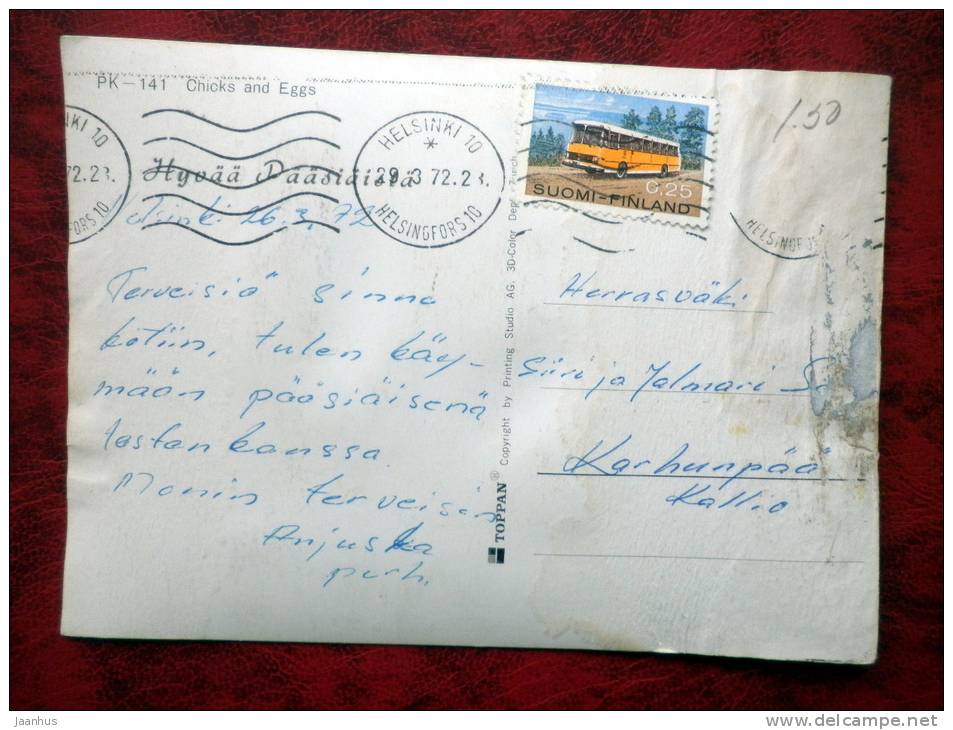 PK-141 Chicks and Eggs
Hyvää Pääsiäistä
HELSINKI 10
29.3 72.-23.
HELSINGFORS 10
NKI 10
72.-23.
FORS 10
HELSINGF
0,25
SUOMI-FINLAND
1.50
Helsinki 26.3.72
Terveisiä sinne
kotiin, tulen käy-
mään pääsiäisenä
lasten kanssa.
Monin terveisin
Anjuska
perh.
TOPPAN® Copyright by Printing Studio AG. 3D-Color Dept. Zürich
Herrasväki
Siiri ja Jalmari S
Karhunpää
Kallio
jaanhus
www.delcampe.net